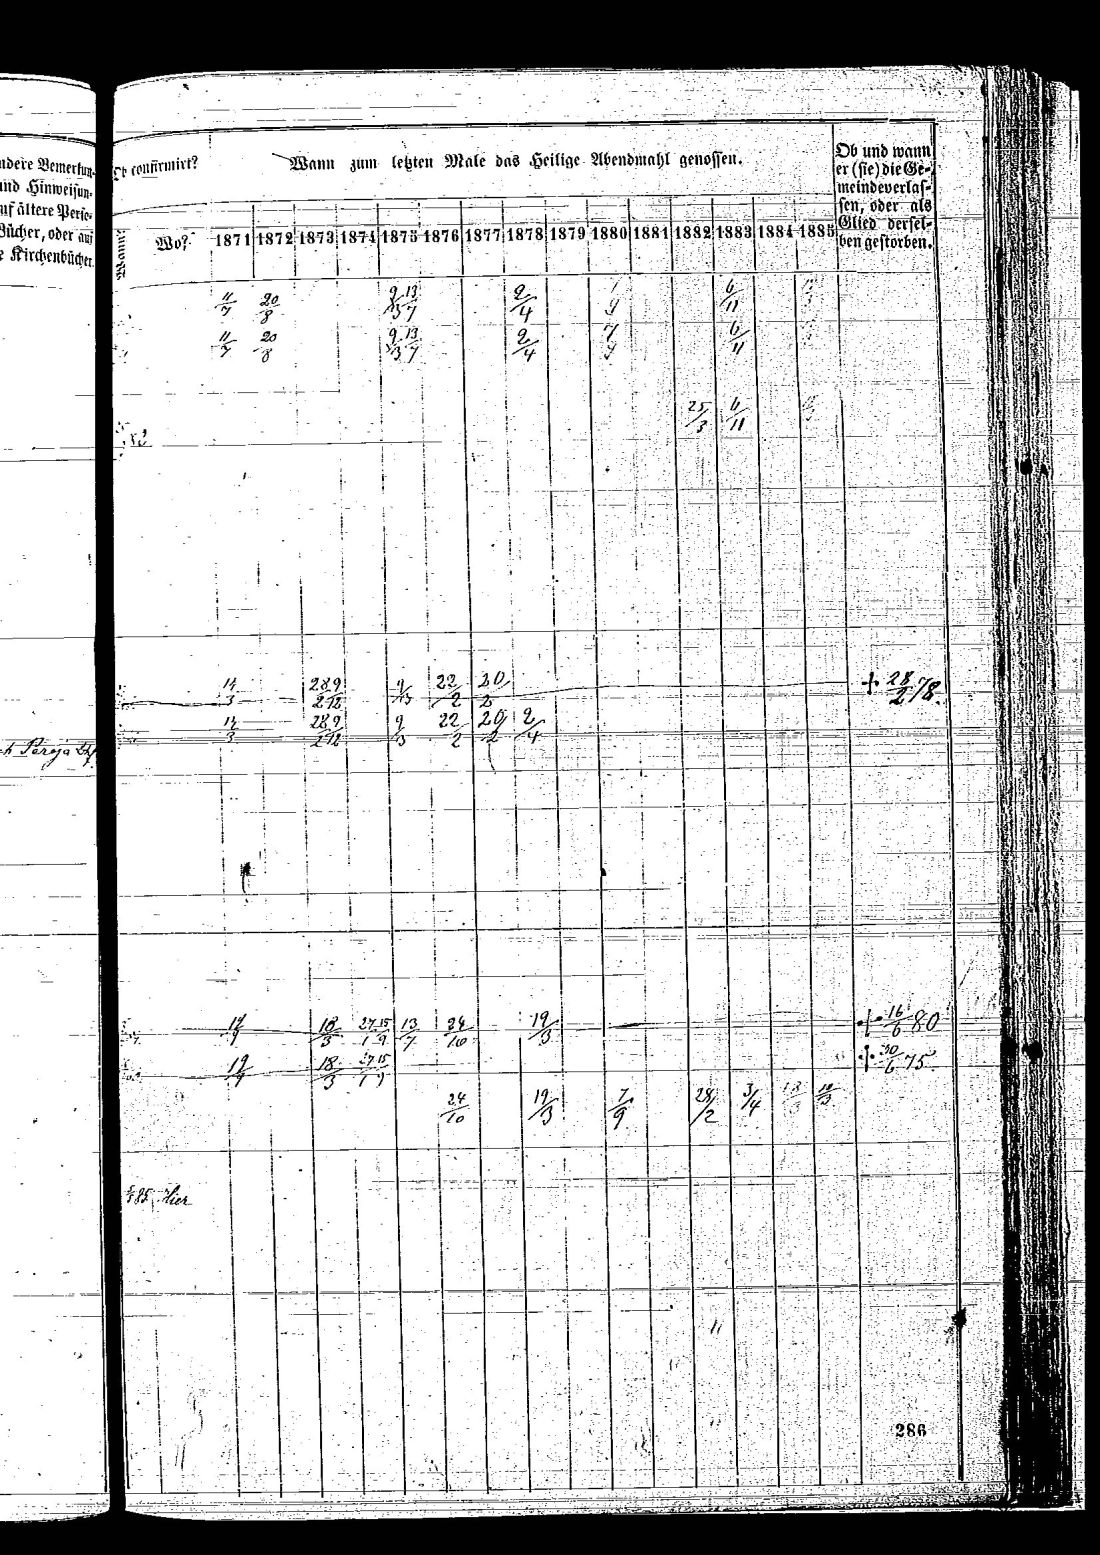 ndere Bemerkun-
und Hinweisun-
uf ältere Perso-
Bücher, oder auf
e Kirchenbücher.
Ob confirmirt?
Wann zum letzten Male das Heilige Abendmahl genossen.
Ob und wann
er (sie) die Ge-
meinde verlas-
sen, oder als
Glied dersel-
ben gestorben.
Wann?
Wo?
1871 1872 1873 1874 1875 1876 1877 1878 1879 1880 1881 1882 1883 1884 1885
11/7 20/8 9/3 13/7 2/4 6/11
11/7 20/8 9/3 13/7 2/4 7/9 6/11
25/3 6/11
14/3 28/2 9/12 9/3 22/2 20/2 † 28/2 78.
14/3 28/2 9/12 9/3 22/2 20/2 2/4
19/9 18/3 27/1 15/9 13/7 24/10 19/3 † 16/6 80
19/9 18/3 27/1 15/9 † 30/6 75.
24/10 19/3 7/9 28/2 3/4
85 Hier
286